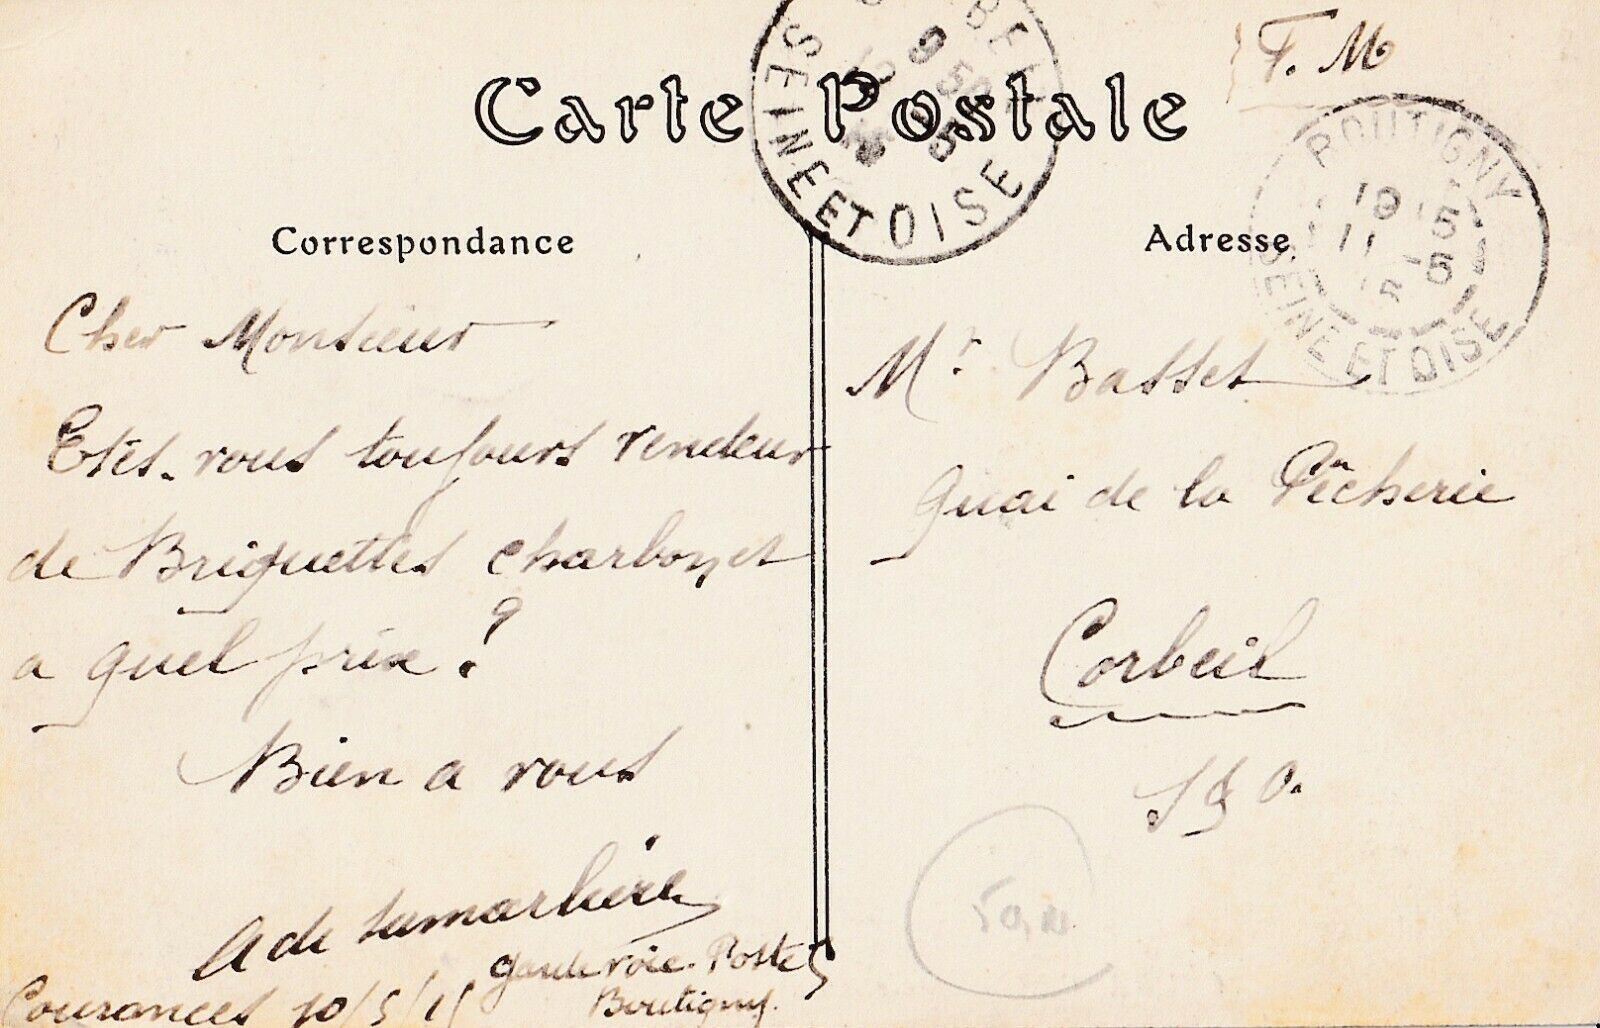 Carte Postale
F. M
BEIL
SEINE ET OISE
BOUTIGNY
19 15
11 -5
15
SEINE ET OISE
Correspondance
Adresse
Cher Monsieur
Etês-vous toujours vendeur
de Briquettes charbon et
a quel prix ?
Bien a vous
A de Lamarlière
garde voie. Poste 5
Boutigny.
Courances 10/5/15
Mr. Basset
Quai de la Pêcherie
Corbeil
S & O.